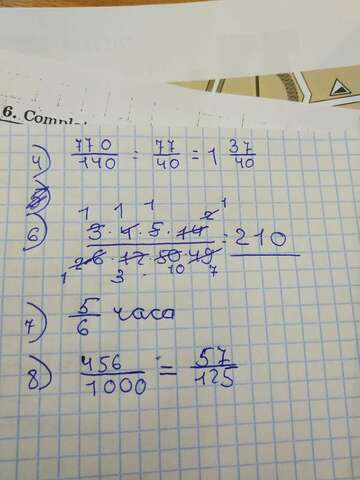 6. Comple
4) 770/140 = 77/40 = 1 37/40
6) 1 1 1 2 1
3 · 4 · 5 · 14 / 6 · 12 · 50 · 49 = 210
1 2 3 10 7
7) 5/6 часа
8) 456/1000 = 57/125